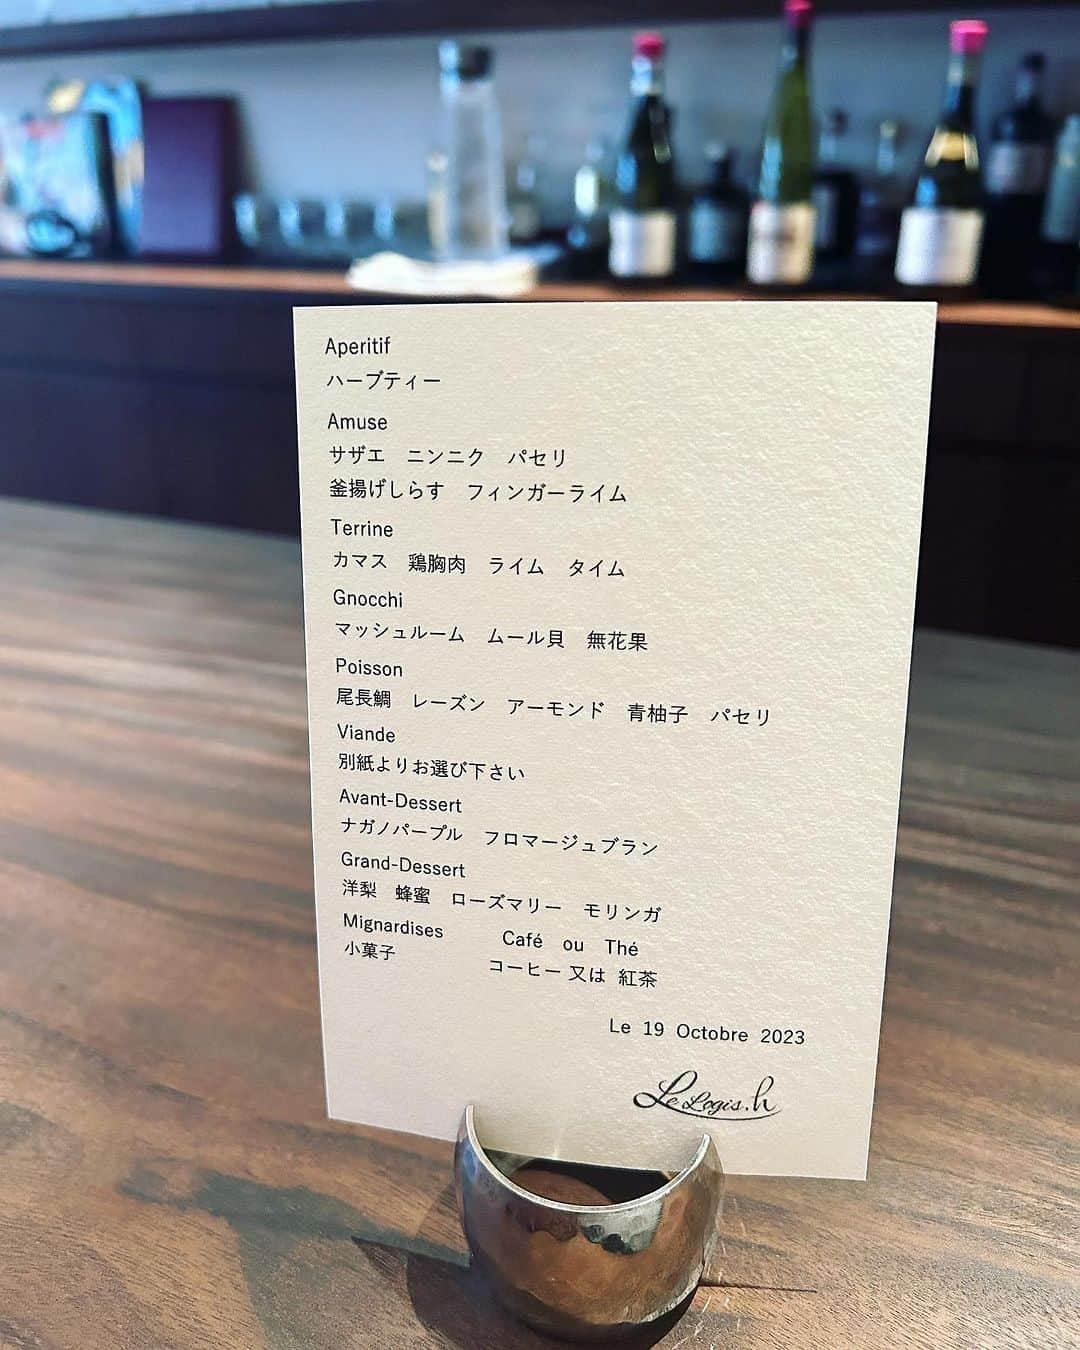 Aperitif
ハーブティー
Amuse
サザエ　ニンニク　パセリ
釜揚げしらす　フィンガーライム
Terrine
カマス　鶏胸肉　ライム　タイム
Gnocchi
マッシュルーム　ムール貝　無花果
Poisson
尾長鯛　レーズン　アーモンド　青柚子　パセリ
Viande
別紙よりお選び下さい
Avant-Dessert
ナガノパープル　フロマージュブラン
Grand-Dessert
洋梨　蜂蜜　ローズマリー　モリンガ
Mignardises
小菓子
Café ou Thé
コーヒー 又は 紅茶
Le 19 Octobre 2023
Le Logis.h